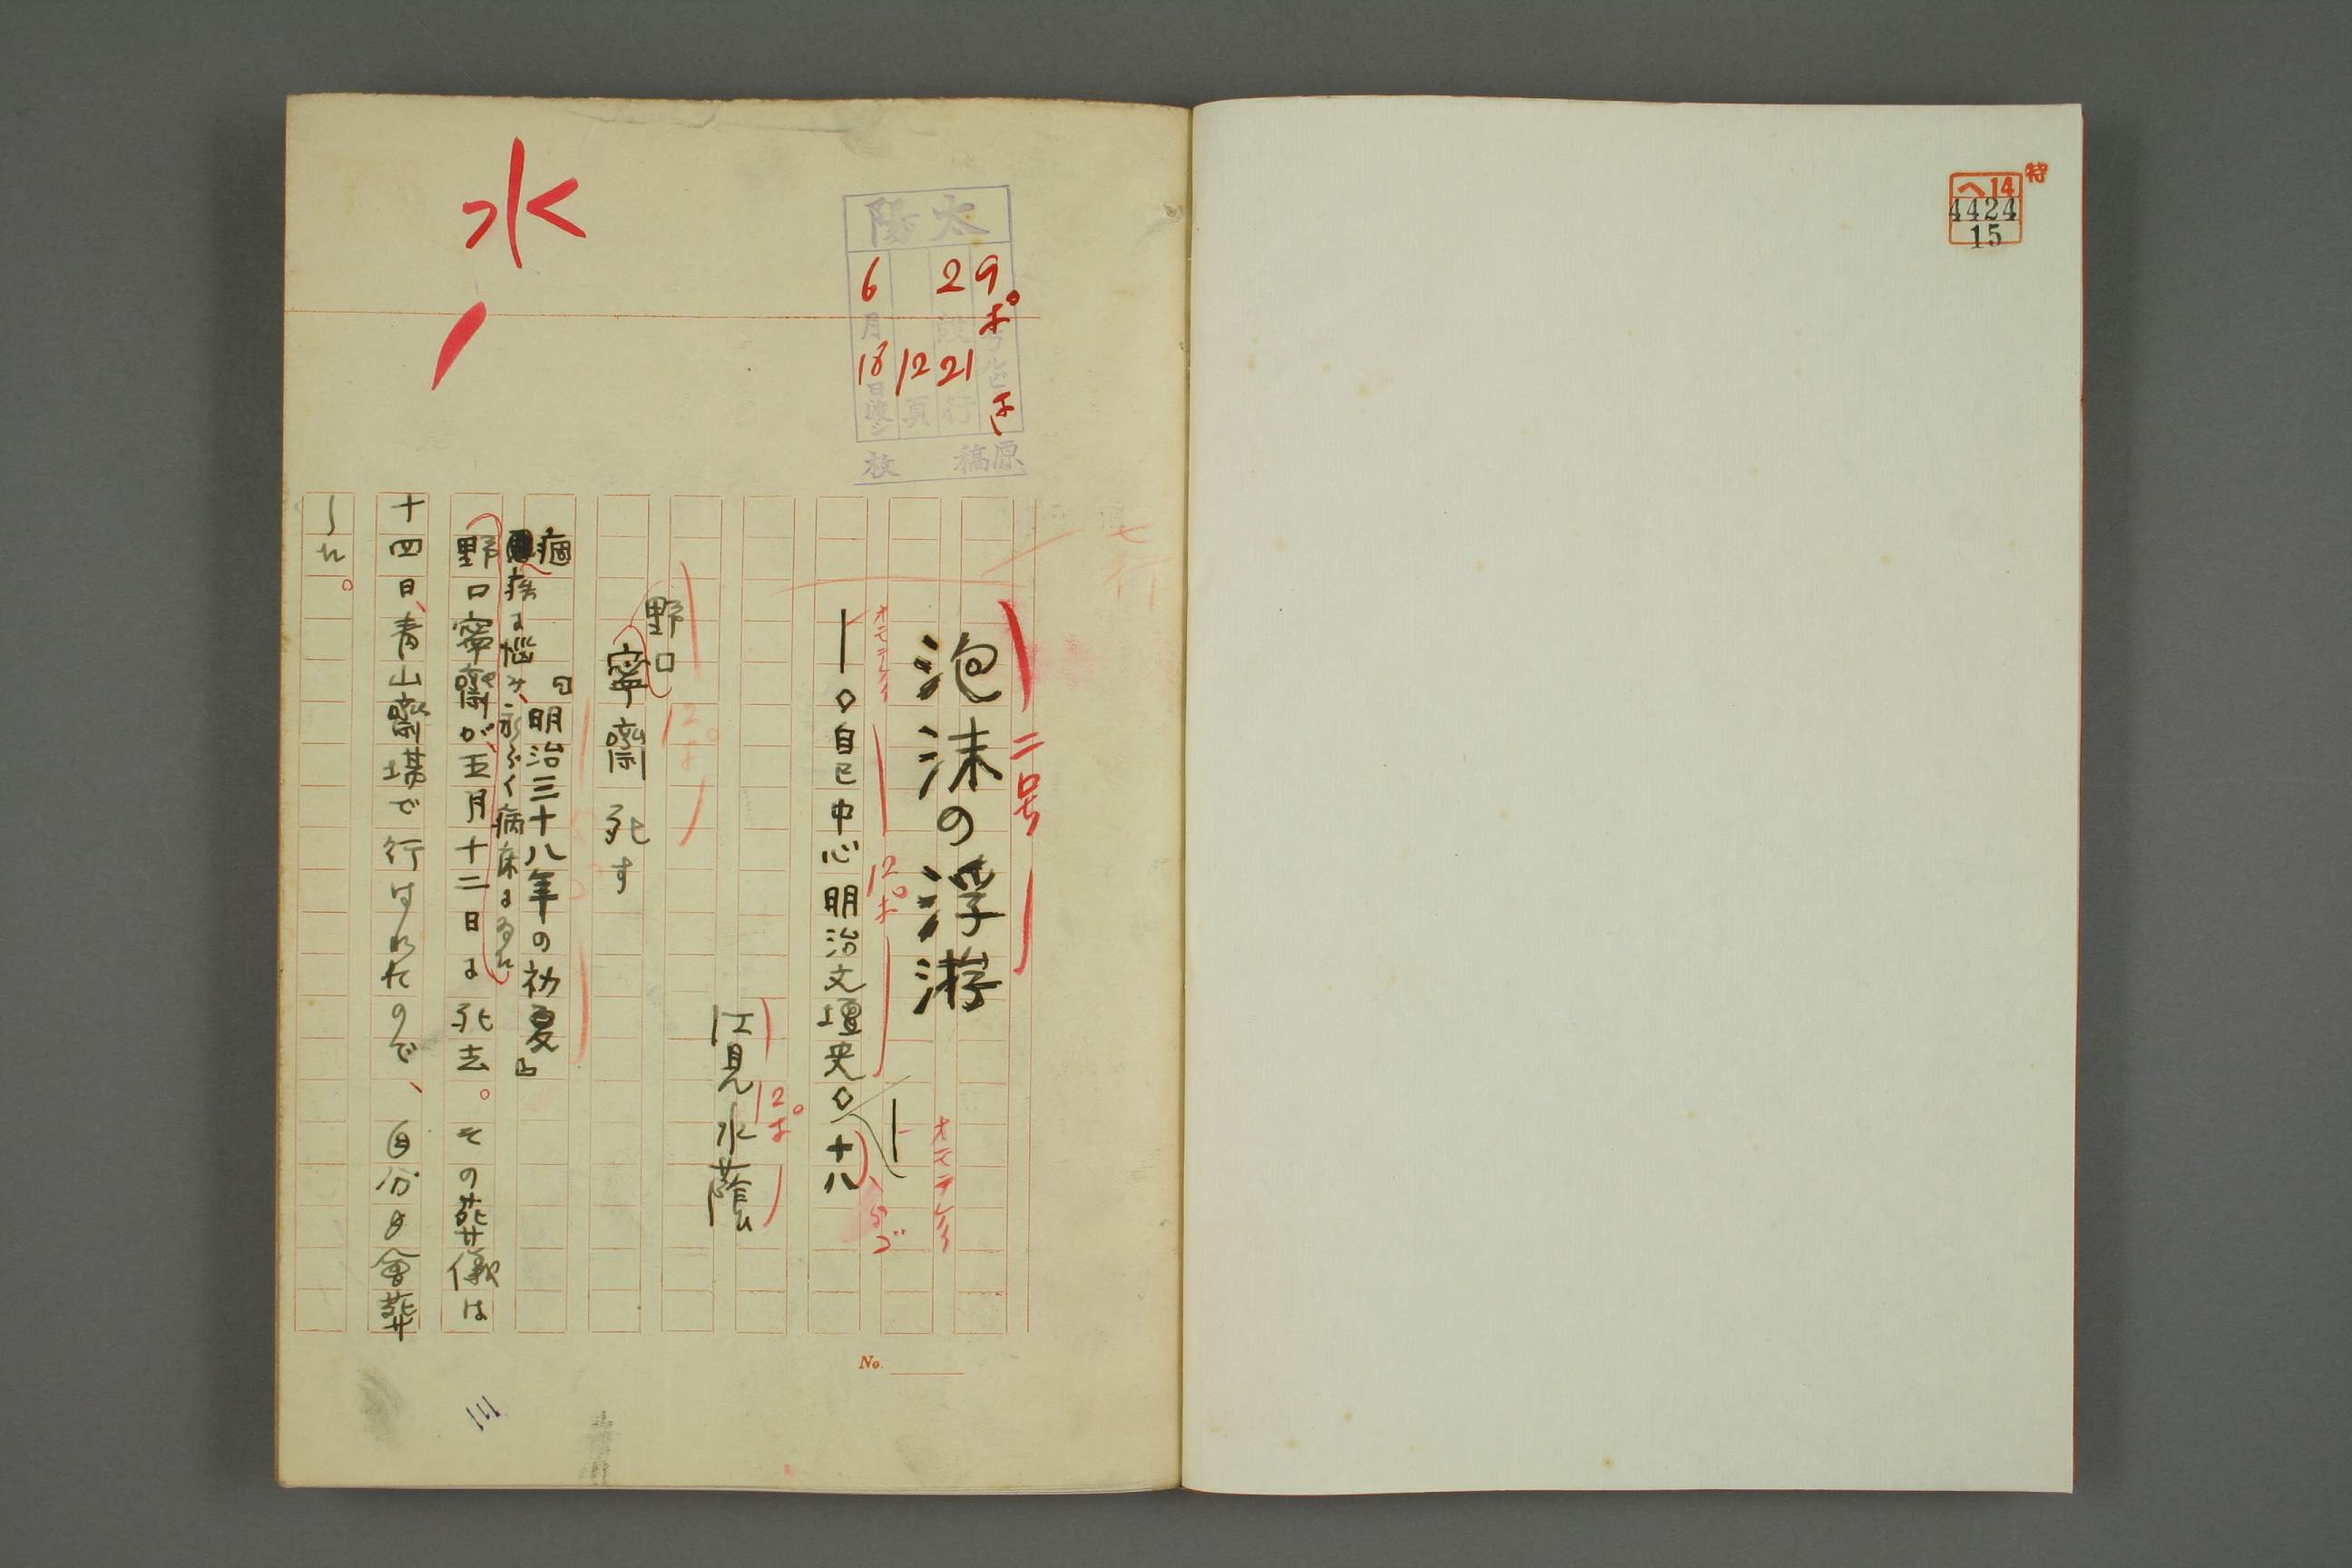 特
へ14
4424
15
七行
太陽
9ポ
ルビ
なし
2段21行
12頁
6月18日渡シ
原稿
枚
水
二号
泡沫の浮游
オモテケイ
12ポ
―◇自己中心明治文壇史◇十八
―
オモテケイ
江見水蔭
12ポ
野口
寧齋死す
12ポ
『明治三十八年の初夏』
痼疾に悩み、永らく病床にゐた
野口寧齋が、五月十二日に死去。その葬儀は
十四日、青山齋場で行はれたので、自分も會葬
した。
No.